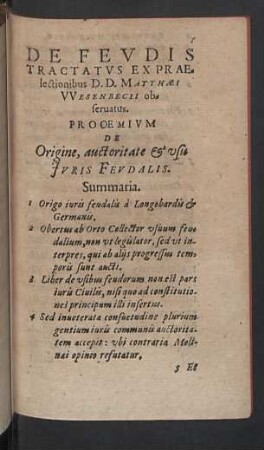 DE FEVDIS
TRACTATVS EX PRAE-
lectionibus D.D. MATTHÆI
VVESENBECII ob-
seruatus.
PROOEMIVM
DE
Origine, auctoritate & vsu
IVRIS FEVDALIS.
Summaria.
1 Origo iuris feudalis à Longobardis &
Germanis.
2 Obertus ab Orto Collector vsuum feu-
dalium, non vt legislator, sed vt in-
terpres, qui ab alijs progressu tem-
poris sunt aucti.
3 Liber de vsibus feudorum non est pars
iuris Ciuilis, nisi quo ad constitutio-
nes principum illi insertas.
4 Sed inueterata consuetudine plurium
gentium iuris communis auctorita-
tem accepit: vbi contraria Moli-
nai opinio refutatur,
5 Et